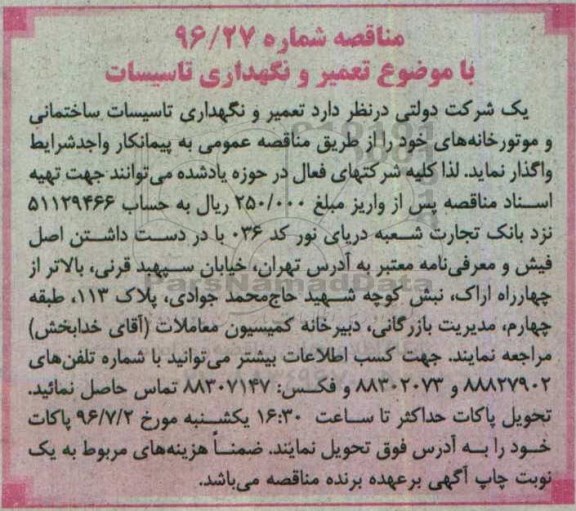 مناقصه شماره ۹۶/۲۷
با موضوع تعمیر و نگهداری تاسیسات
یک شرکت دولتی درنظر دارد تعمیر و نگهداری تاسیسات ساختمانی
و موتورخانه‌های خود را از طریق مناقصه عمومی به پیمانکار واجدشرایط
واگذار نماید. لذا کلیه شرکتهای فعال در حوزه یادشده می‌توانند جهت تهیه
اسناد مناقصه پس از واریز مبلغ ۲۵۰/۰۰۰ ریال به حساب ۵۱۱۲۹۴۶۶
نزد بانک تجارت شعبه دریای نور کد ۰۳۶ با در دست داشتن اصل
فیش و معرفی‌نامه معتبر به آدرس تهران، خیابان سپهبد قرنی، بالاتر از
چهارراه اراک، نبش کوچه شهید حاج‌محمد جوادی، پلاک ۱۱۳، طبقه
چهارم، مدیریت بازرگانی، دبیرخانه کمیسیون معاملات (آقای خدابخش)
مراجعه نمایند. جهت کسب اطلاعات بیشتر می‌توانید با شماره تلفن‌های
۸۸۸۲۷۹۰۲ و ۸۸۳۰۲۰۷۳ و فکس: ۸۸۳۰۷۱۴۷ تماس حاصل نمائید.
تحویل پاکات حداکثر تا ساعت ۱۶:۳۰ یکشنبه مورخ ۹۶/۷/۲ پاکات
خود را به آدرس فوق تحویل نمایند. ضمناً هزینه‌های مربوط به یک
نوبت چاپ آگهی برعهده برنده مناقصه می‌باشد.
ParsNamadData